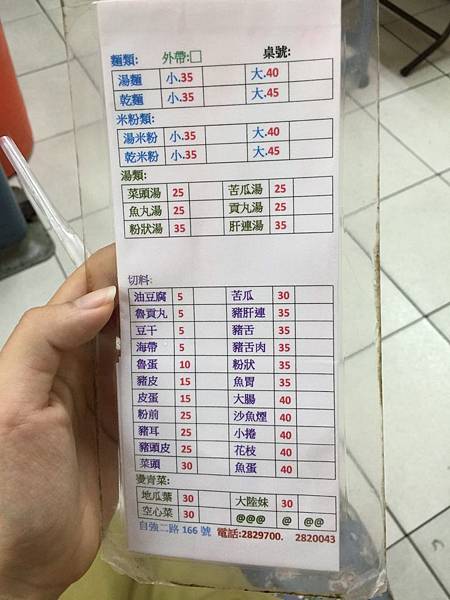 麵類: 外帶:□ 桌號:
湯麵 小.35 大.40
乾麵 小.35 大.45
米粉類:
湯米粉 小.35 大.40
乾米粉 小.35 大.45
湯類:
菜頭湯 25 苦瓜湯 25
魚丸湯 25 貢丸湯 25
粉狀湯 35 肝連湯 35
切料:
油豆腐 5 苦瓜 30
魯貢丸 5 豬肝連 35
豆干 5 豬舌 35
海帶 5 豬舌肉 35
魯蛋 10 粉狀 35
豬皮 15 魚胃 35
皮蛋 15 大腸 40
粉前 25 沙魚煙 40
豬耳 25 小捲 40
豬頭皮 25 花枝 40
菜頭 30 魚蛋 40
燙青菜:
地瓜葉 30 大陸妹 30
空心菜 30 @@@ @ @@
自強二路 166 號 電話:2829700. 2820043